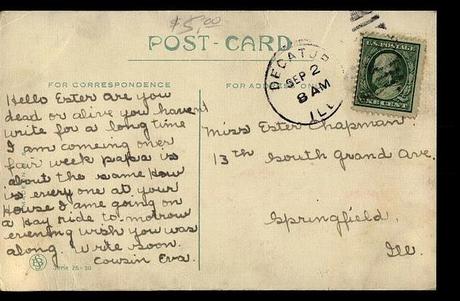 $5.00
POST-CARD
FOR CORRESPONDENCE
FOR AD
Hello Ester are you
dead or alive you havent
write for a long time
I am comeing over
fair week papa is
about the same how
is every one at your
House I ame going on
a hay ride to morrow
evening wish you was
along. Write soon.
Cousin Eva.
DECATUR
SEP 2
8 AM
ILL
U.S. POSTAGE
Miss Ester Chapman
13th South Grand Ave.
Springfield,
Ill.